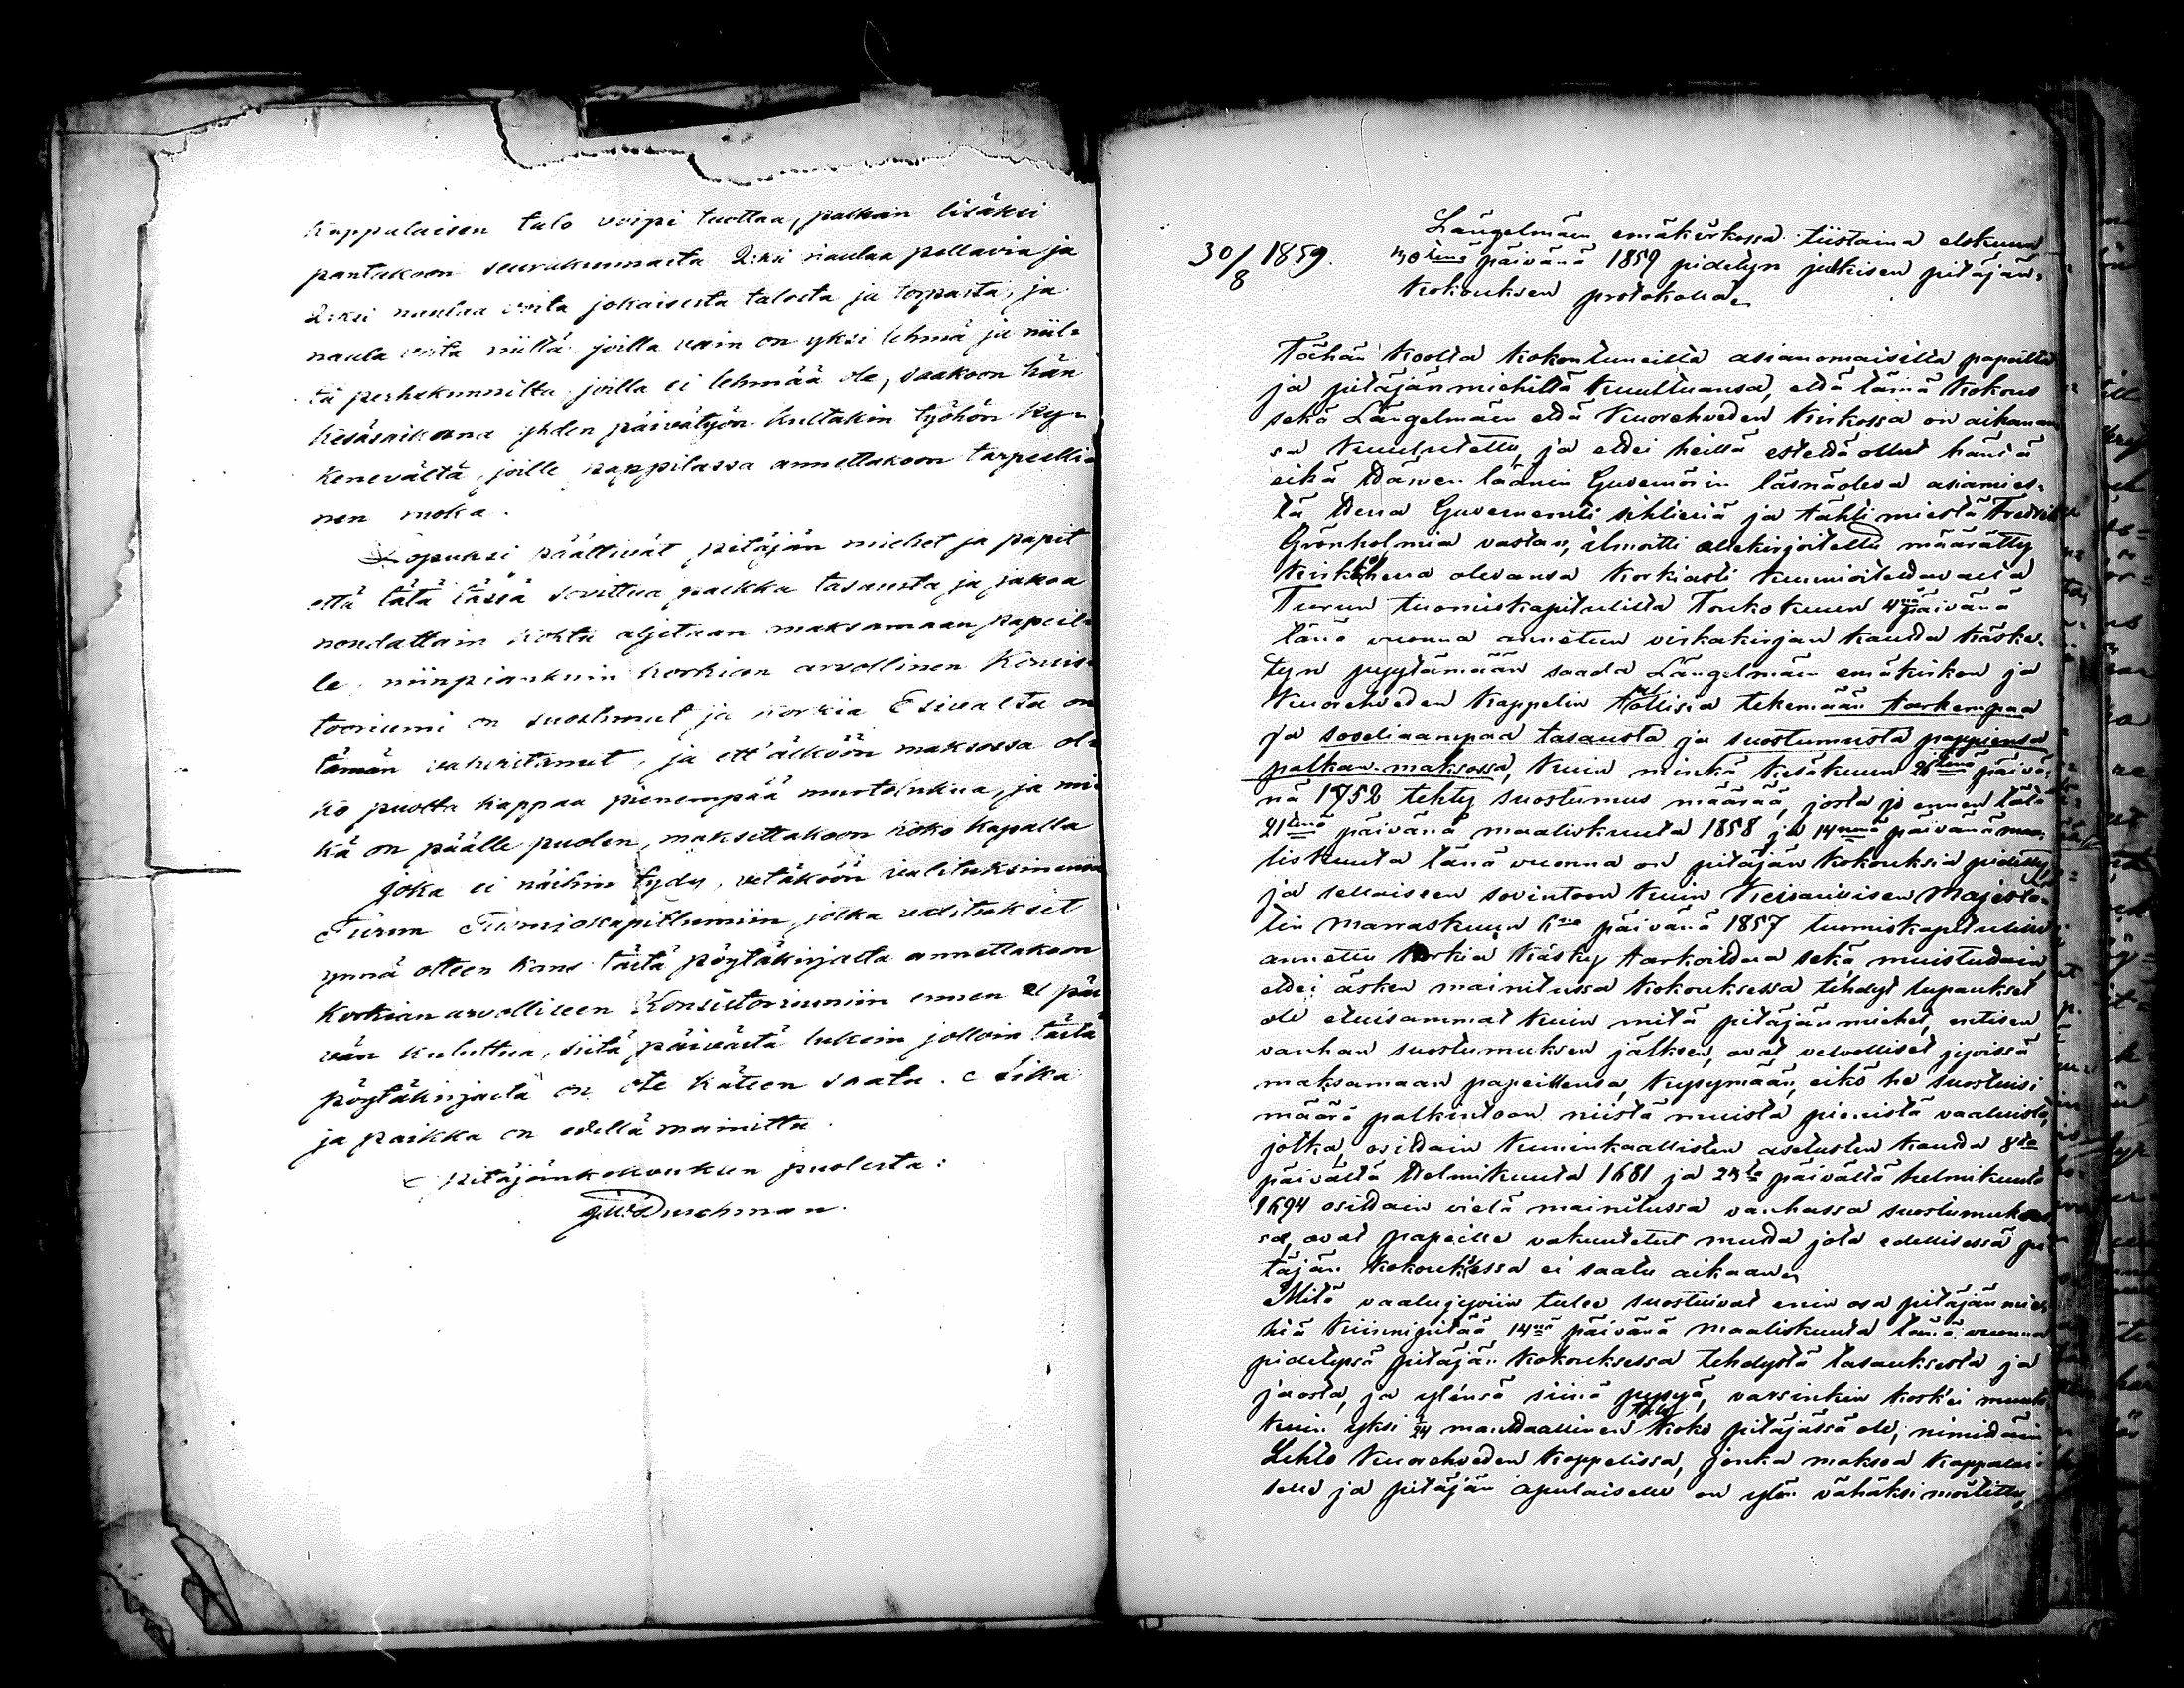 kappulaisen talo voipi tuottaa, palkan lisäksi
pantakoon seurakunnasta 2:ksi naulaa pellavia ja
2:ksi naulaa voita jokaisesta talosta ja torpasta, ja
naula voita niiltä joilla vain on yksi lehmä ja niil-
tä perhekunnilta joilla ei lehmää ole, saakoon hän
kesäsaikaana yhden päivätyön kultakin työhön ky-
kenevältä, joille pappilassa annettakoon tarpeelli
nen ruoka.
Lopuksi päättivät pitäjän miehet ja papit
että tätä tässä sovittua palkka tasausta ja jakoa
noudattain kohta aljetaan maksamaan papeil-
le, niinpiankuin korkian arvollinen Konsis-
toriumi on suostunut ja korkia Esivalta on
tämän vahvistanut, ja ett'älköön maksossa ol-
ko puolta kappaa pienempää murtolukua, ja mi-
kä on päälle puolen, maksettakoon koko kapalla
Joka ei näihin tydy, vetäköön valituksinensa
Turun Tuomiokapitlumiin, jotka valitukset
ynnä otteen kans tästä pöytäkirjasta annettakoon
korkian arvolliseen Konsistoriumiin ennen 21 päi
vän kuluttua, siitä päivästä lukein jolloin tästä
pöytäkirjasta on ote käteen saatu. Aika
ja paikka on edellä mainittu.
Pitäjänkokouksen puolesta:
Durchman.
30/8 1859.
Längelmäen emäkirkossa tiistaina elokuun
30tenä päivänä 1859 pidetyn julkisen pitäjän-
kokouksen protokolla
Tähän koolta kokontuneilta asianomaisilta papeilta
ja pitäjänmiehiltä kuultuansa, että tämä kokous
sekä Längelmäen että Kuorehveden kirkossa on aikanan
sa kuulutettu, ja ettei heillä estettä ollut häntä
eikä Hämeen läänin Guvernörin läsnäoleva asiamies-
tä Herra Guvernementi sihtieriä ja tähti miestä Fredrik
Grönholmia vastan, ilmoitti allekirjoitettu määrätty
Kirkkoherra olevansa korkiasti kunnioitettavalta
Turun tuomiokapitulilta Toukokuun 4nä päivänä
tänä vuonna annetun virkakirjan kautta käske-
tyn pyytämään saada Längelmäen emäkirkon ja
Kuorehveden kappelin talollisia tekemään tarkempaa
ja soveliaampaa tasausta ja suostumusta pappiensa
palkan maksossa, kuin minkä kesäkuun 26tenä päivä-
nä 1752 tehty suostumus määrää, josta jo ennen tätä
21tenä päivänä maaliskuuta 1858 ja 14nenä päivänä maa
liskuuta tänä vuonna on pitäjän kokouksia pidetty,
ja sellaiseen sovintoon kuin Keisarillisen Majeste-
tin Marraskuun 6nä päivänä 1857 tuomiokapitulille
annettu korkia käsky tarkoittaa sekä muistuttain
ettei äsken mainitussa kokouksessa tehdyt lupaukset
ole etuisammat kuin mitä pitäjänmiehet, entisen
vanhan suostumuksen jälkeen, ovat velvolliset jyvissä
maksamaan papeillensa, kysymään, eikö he suostuisi
määrä palkintoon niistä muista pienistä vaaluista,
jotka, osittain kuninkaallisten asetusten kautta 8ta
päivältä Helmikuuta 1681 ja 23ta päivältä helmikuuta
1694 osittain vielä mainitussa vanhassa suostumukses
sa, ovat papeille vakuutetut mutta jota edellisessä pi
täjän kokouksessa ei saatu aikaan
Mitä vaalujyviin tulee suostuivat enin osa pitäjänmie-
hiä kiinnipitää 14nä päivänä maaliskuuta tänä vuonna
pidetyssä pitäjän kokouksessa tehdystä tasauksesta ja
jaosta, ja yhensä siinä pysyä, varsinkin kosk'ei muuta
kuin yksi 1/24 manttaallinen talo koko pitäjässä ole, nimittäin
Lehto Kuorehveden kappelissa, jonka maksoa kappalai
selle ja pitäjän apulaiselle on ylön vähäksi moitittu,